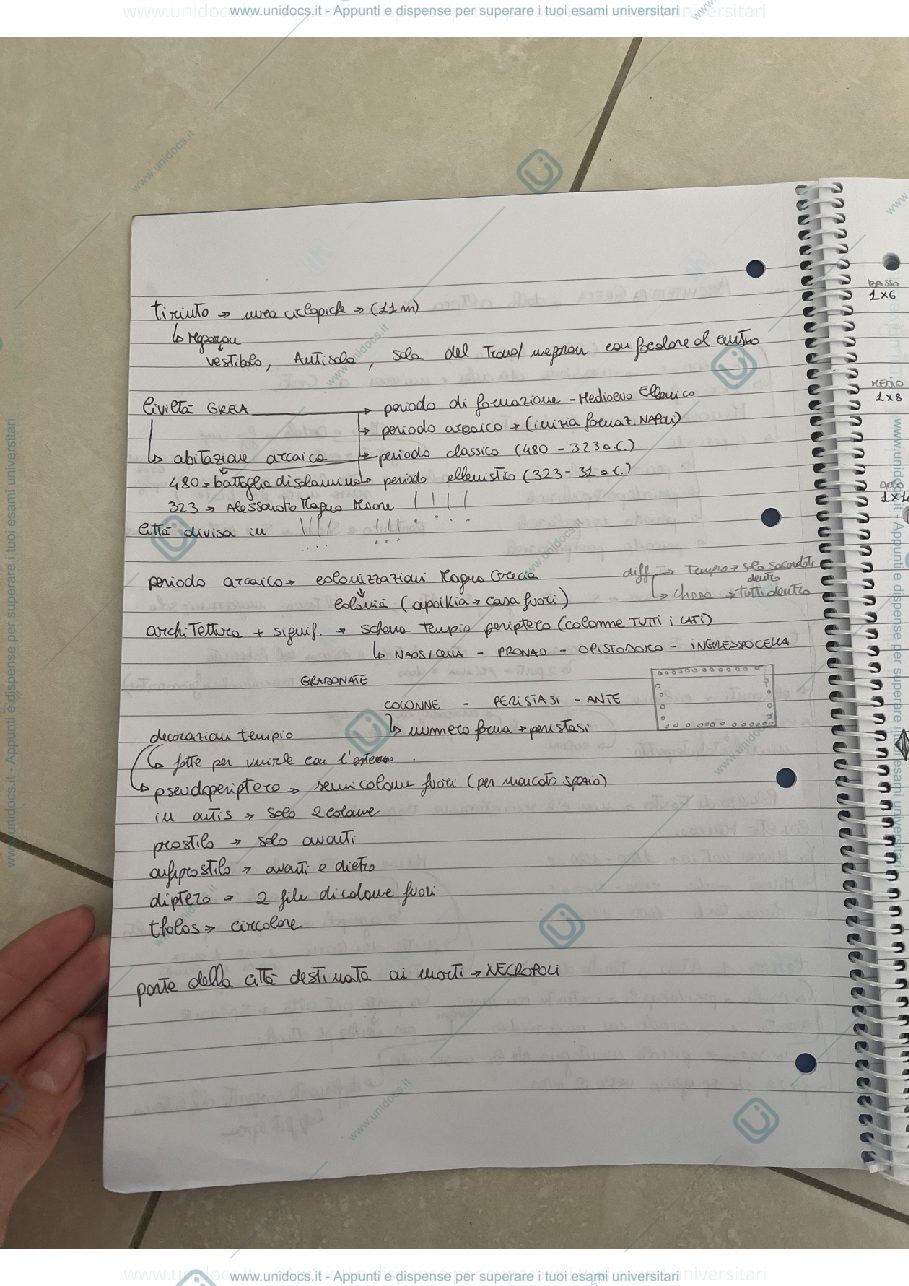 www.unidocs.it - Appunti e dispense per superare i tuoi esami universitari
tirinto → mura ciclopiche → (11 m)
↳ Megaron
vestibolo, Antisala, sala del Trono/ megaron con focolare al centro
Civiltà GREA → periodo di formazione - Medioevo Ellenico
→ periodo arcaico → (inizia format. NAPOLI)
↳ abitazione arcaica → periodo classico (480 - 323 a.C.)
480 → battaglia di salamina → periodo ellenistico (323 - 31 a.C.)
323 → Alessandro Magno Muore
Città divisa in
periodo arcaico → colonizzazioni Magna Grecia
diff. → Tempio → solo sacerdoti dentro
↳ chiesa → tutti dentro
colonia (apoikia → casa fuori)
architettura + signif. → schema Tempio periptero (colonne TUTTI i LATI)
↳ NAOS/CELLA - PRONAO - OPISTODOMO - INGRESSO CELLA
COLONNE - PERISTASI - ANTE
↳ numero forma → peristasi
decorazioni tempio
↳ fatte per unirle con l'esterno
↳ pseudoperiptero → semicolonne fuori (per mancato spazio)
in antis → solo 2 colonne
prostilo → solo avanti
anfiprostilo → avanti e dietro
diptero → 2 file di colonne fuori
tholos → circolare
parte della città destinata ai morti → NECROPOLI
BASSO
1x6
MEDIO
1x8
www.unidocs.it - Appunti e dispense per superare i tuoi esami universitari